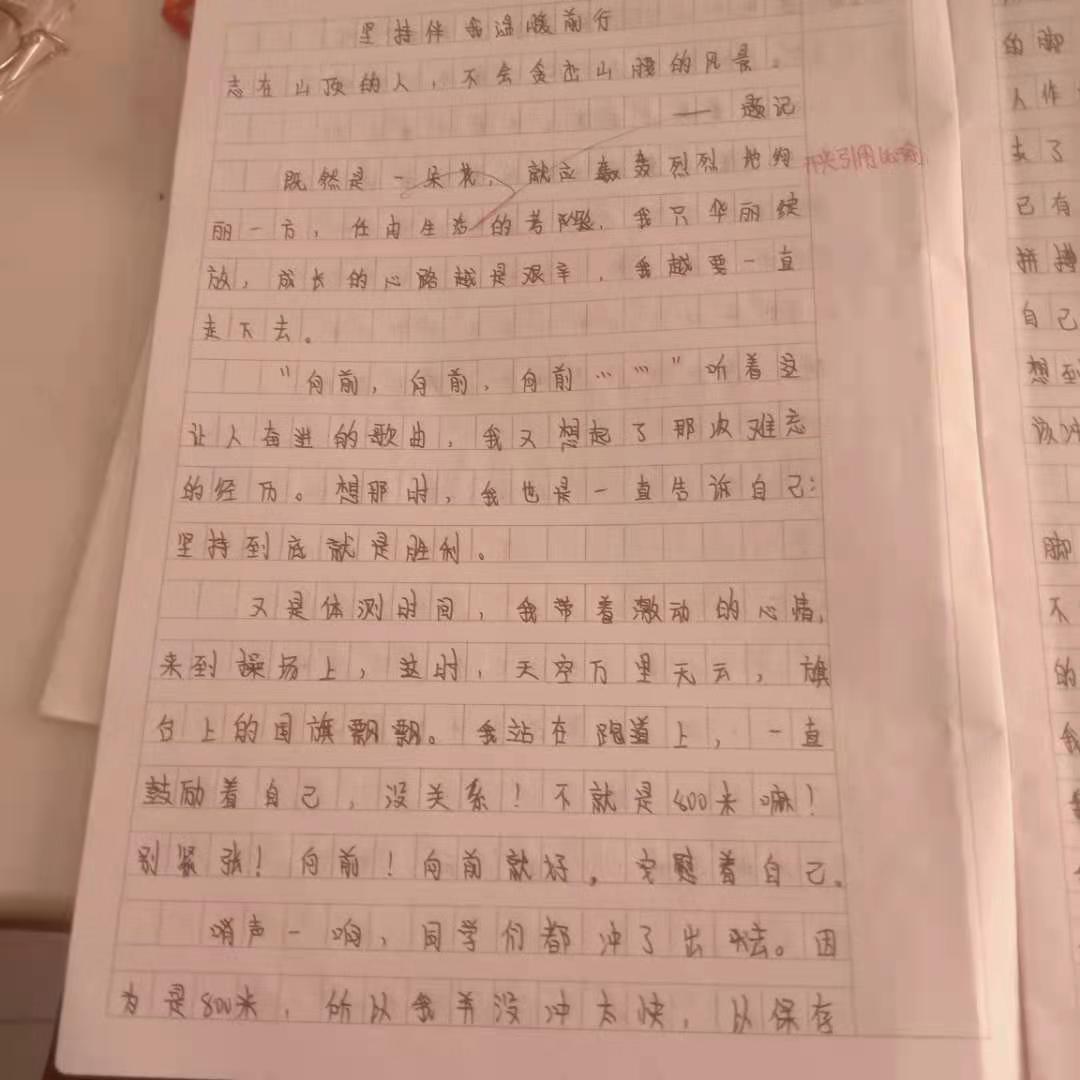 坚持伴我温暖前行
志在山顶的人，不会贪恋山腰的风景。
——题记
既然是一朵花，就应轰轰烈烈地绚
丽一方，任由生活的考验，我只华丽绽
放，成长的心路越是艰辛，我越要一直
走下去。
“向前，向前，向前……”听着这
让人奋进的歌曲，我又想起了那次难忘
的经历。想那时，我也是一直告诉自己：
坚持到底就是胜利。
又是体测时间，我带着激动的心情，
来到操场上，这时，天空万里无云，旗
台上的国旗飘飘。我站在跑道上，一直
鼓励着自己，没关系！不就是800米嘛！
别紧张！向前！向前就好，安慰着自己。
哨声一响，同学们都冲了出去。因
为是800米，所以我并没冲太快，以保存
引用
的脚
人作
去了
已有
拼搏
自己
想到
该冲
脚
不
的
我